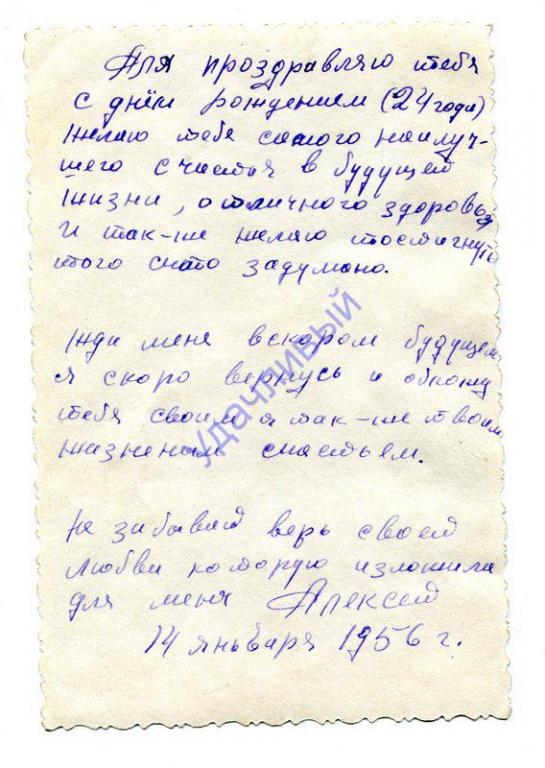 Аля проздравляю тебя
с днём рождением (24 года)
желаю тебе самого наилуч-
шего счастья в будущей
жизни, отличного здоровья
и так-же желаю достигнуть
того что задумано.
Жди меня вскором будущем
я скоро вернусь и
тебя своим а так-же твоим
жизненым счастьем.
Не забывай верь своей
любви которую изложила
для меня Алексей
14 января 1956 г.
удачливый